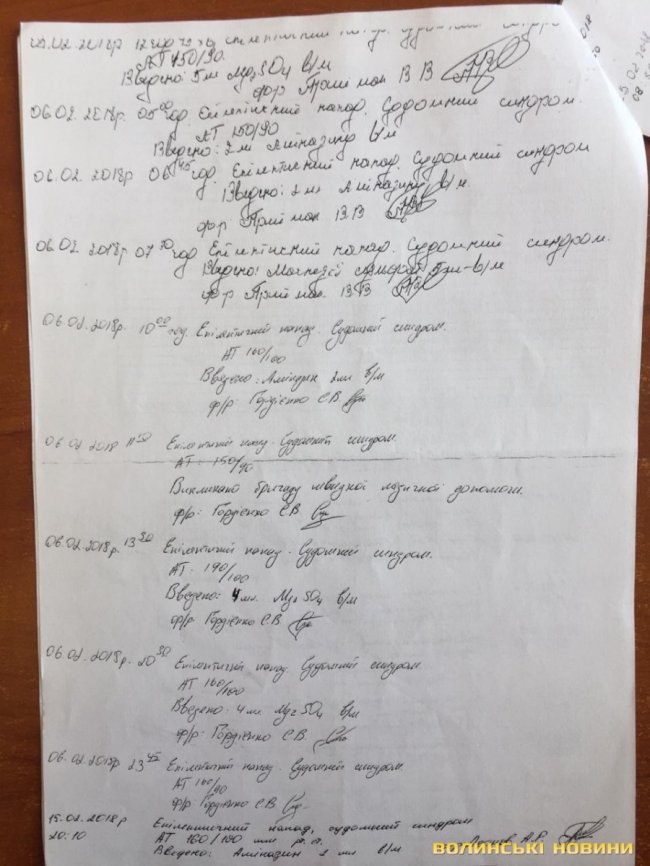 Епілептичний напад. Судомний синдром.
АТ 150/90.
Введено: 5 мл MgSO4 в/м
ф-р Приймак В В
06.02.2018р. 05⁰⁰ год Епілептичний напад. Судомний синдром.
АТ 150/90
Введено: 2 мл Аміназину в/м
06.02.2018р 06⁴⁵ год. Епілептичний напад. Судомний синдром
Введено: 2 мл Аміназину в/м
ф-р Приймак В.В.
06.02.2018р 07 год Епілептичний напад. Судомний синдром.
Введено: Магнезії 5 мл в/м
ф-р Приймак В В
06.02.2018р. 10⁰⁰ год. Епілептичний напад. Судомний синдром.
АТ 160/100
Введено: Аміназин 2 мл в/м
ф/р: Гордієнко С.В
06.02.2018 11⁵⁰ Епілептичний напад. Судомний синдром.
АТ: 150/90
Викликано бригаду швидкої медичної допомоги.
ф/р: Гордієнко С.В
06.02.2018р. 13⁵⁰ Епілептичний напад. Судомний синдром.
АТ. 190/100
Введено: 4 мл. MgSO4 в/м
ф/р Гордієнко С.В.
06.02.2018р. 20³⁰ Епілептичний напад. Судомний синдром.
АТ 160/100
Введено: 4 мл MgSO4 в/м
ф/р: Гордієнко С.В
06.02.2018р 23⁴⁵ Епілептичний напад. Судомний синдром.
АТ 160/90
ф/р Гордієнко С.В
15.02.2018р Епілептичний напад, судомний синдром
20:10 АТ 160/100 мм рт. ст.
Введено: Аміназин 2 мл в/м А.Р.
волинські новини